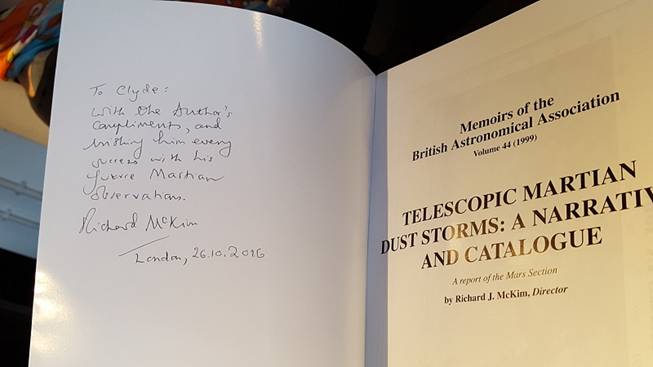 To Clyde:
With the Author's
compliments, and
wishing him every
success with his
future Martian
observations.
Richard McKim
London, 26.10.2016
Memoirs of the
British Astronomical Association
Volume 44 (1999)
TELESCOPIC MARTIAN
DUST STORMS: A NARRATIV
AND CATALOGUE
A report of the Mars Section
by Richard J. McKim, Director